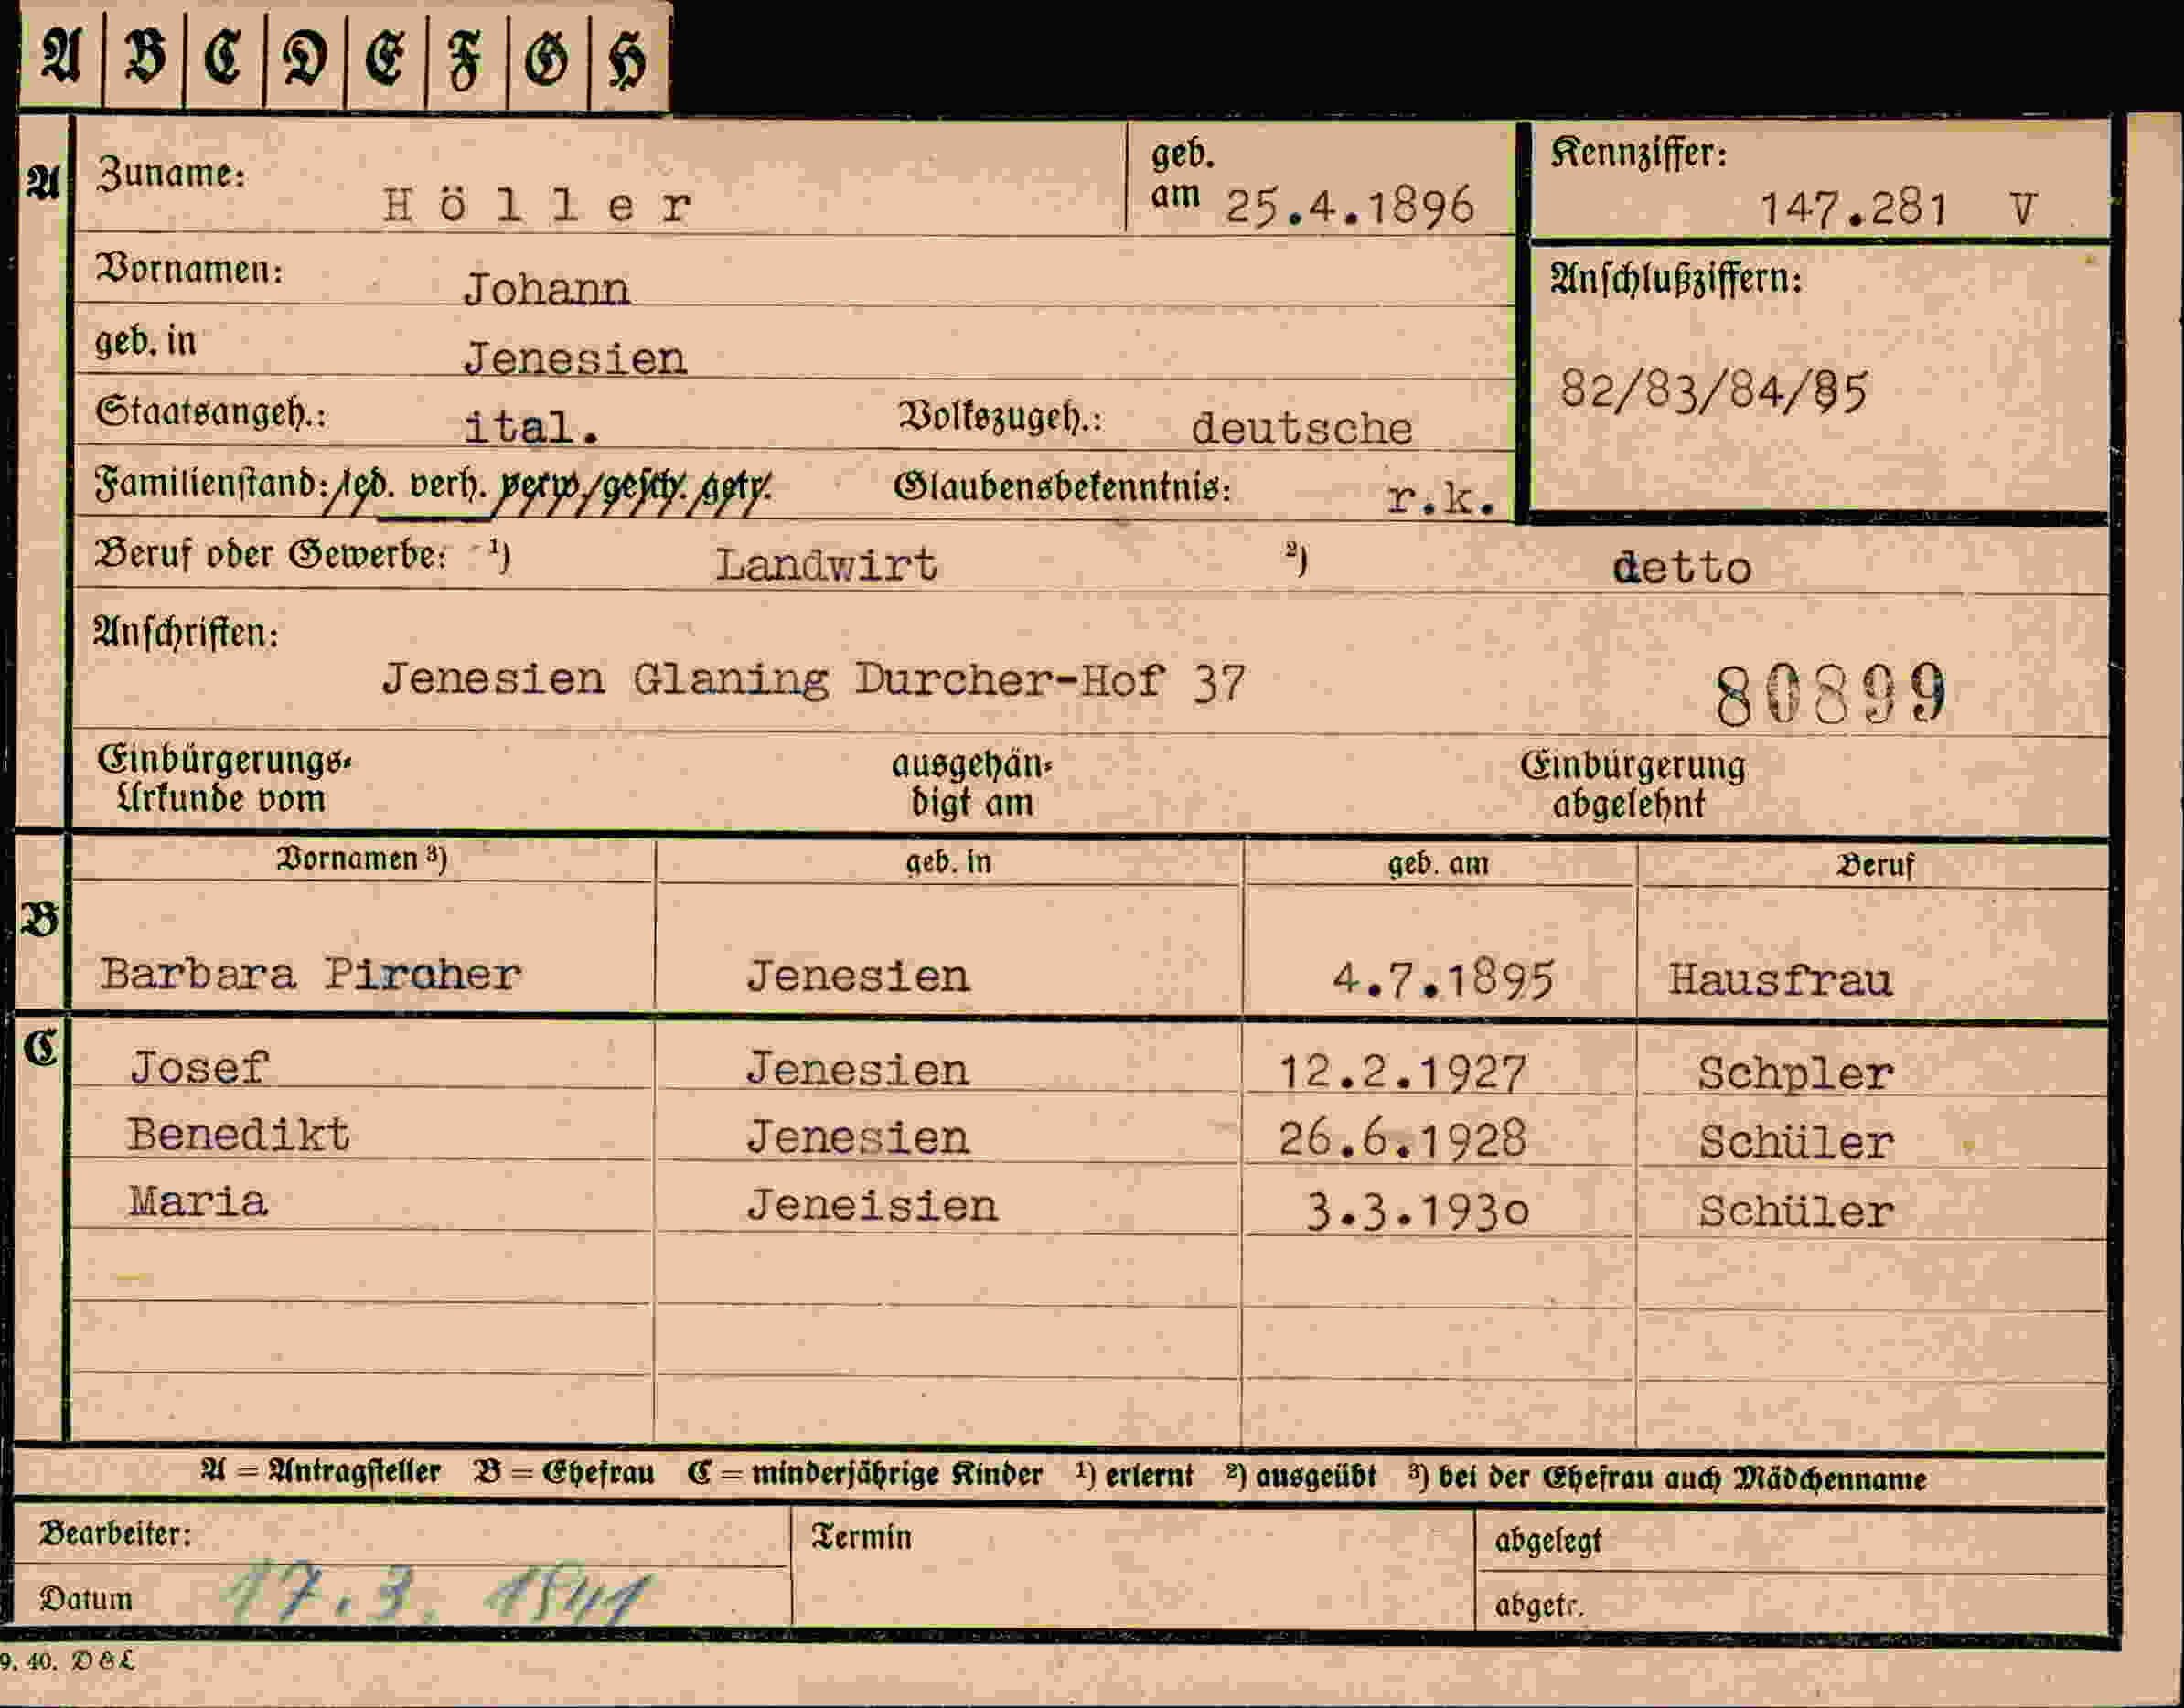 A B C D E F G H
A Zuname: Höller geb. am 25.4.1896 Kennziffer: 147.281 V
Vornamen: Johann Anschlußziffern:
geb. in Jenesien 82/83/84/85
Staatsangeh.: ital. Volkszugeh.: deutsche
Familienstand: led. verh. verw. gesch. getr. Glaubensbekenntnis: r.k.
Beruf oder Gewerbe: ¹) Landwirt ²) detto
Anschriften:
Jenesien Glaning Durcher-Hof 37 80899
Einbürgerungs-Urkunde vom ausgehändigt am Einbürgerung abgelehnt
Vornamen ³) geb. in geb. am Beruf
B
Barbara Pircher Jenesien 4.7.1895 Hausfrau
C Josef Jenesien 12.2.1927 Schpler
Benedikt Jenesien 26.6.1928 Schüler
Maria Jeneisien 3.3.1930 Schüler
A = Antragsteller B = Ehefrau C = minderjährige Kinder ¹) erlernt ²) ausgeübt ³) bei der Ehefrau auch Mädchenname
Bearbeiter: Termin abgelegt
Datum 17.3.1941 abgetr.
9. 40. D & L